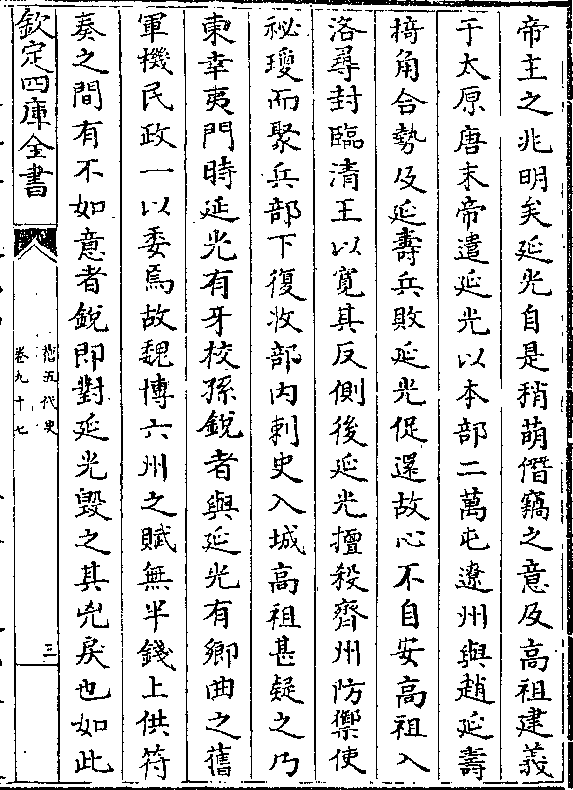 帝主之兆明矣延光自是稍萌僭竊之意及高祖建義
于太原唐末帝遣延光以本部二萬屯遼州與趙延壽
掎角合勢及延壽兵敗延光促還故心不自安高祖入
洛尋封臨清王以寛其反側後延光擅殺齊州防禦使
祕瓊而聚兵部下復收部内刺史入城高祖甚疑之乃
東幸夷門時延光有牙校孫銳者與延光有鄉曲之舊
軍機民政一以委焉故魏博六州之賦無半錢上供符
奏之間有不如意者銳即對延光毁之其兇戾也如此
欽定四庫全書
舊五代史
卷九十七
三